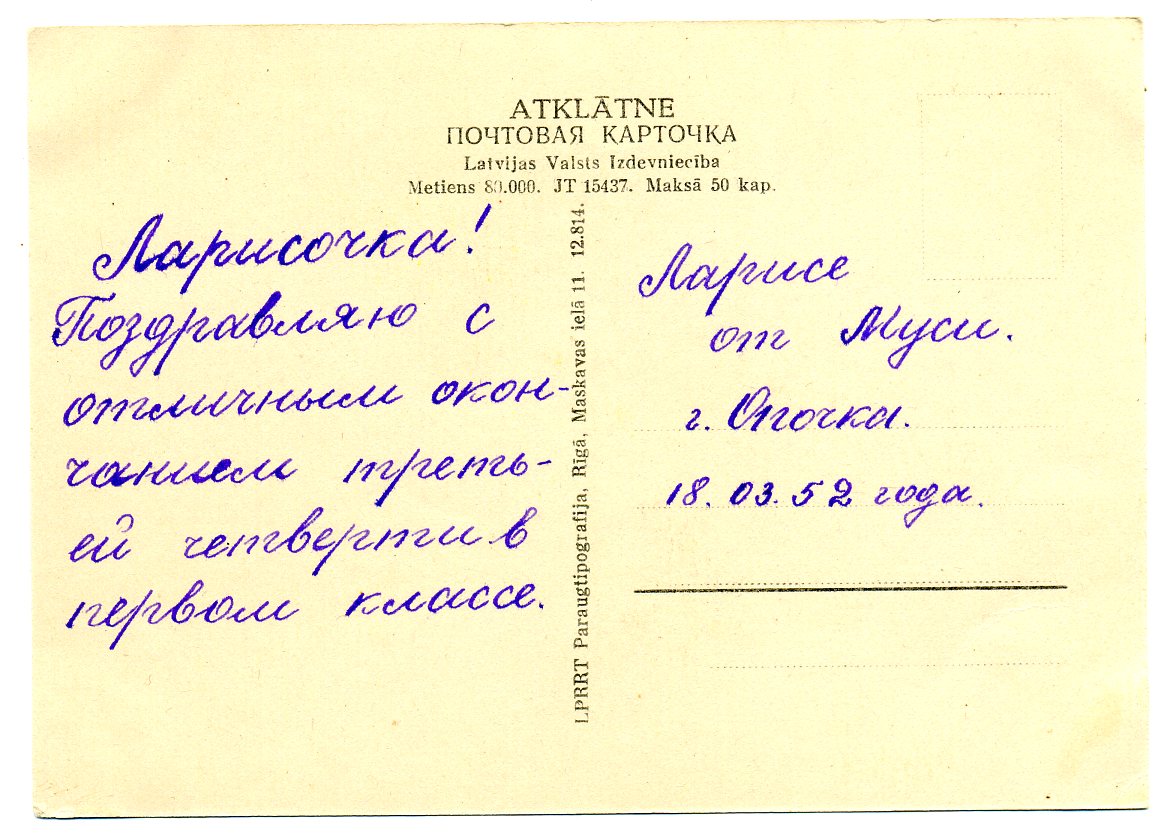 ATKLĀTNE
ПОЧТОВАЯ КАРТОЧКА
Latvijas Valsts Izdevniecība
Metiens 80.000. JT 15437. Maksā 50 kap.
Ларисочка!
Поздравляю с
отличным окон-
чанием треть-
ей четверти в
первом классе.
LPRRT Paraugtipografija, Rīgā, Maskavas ielā 11. 12.814.
Ларисе
от Муси.
г. Опочка.
18. 03. 52 года.